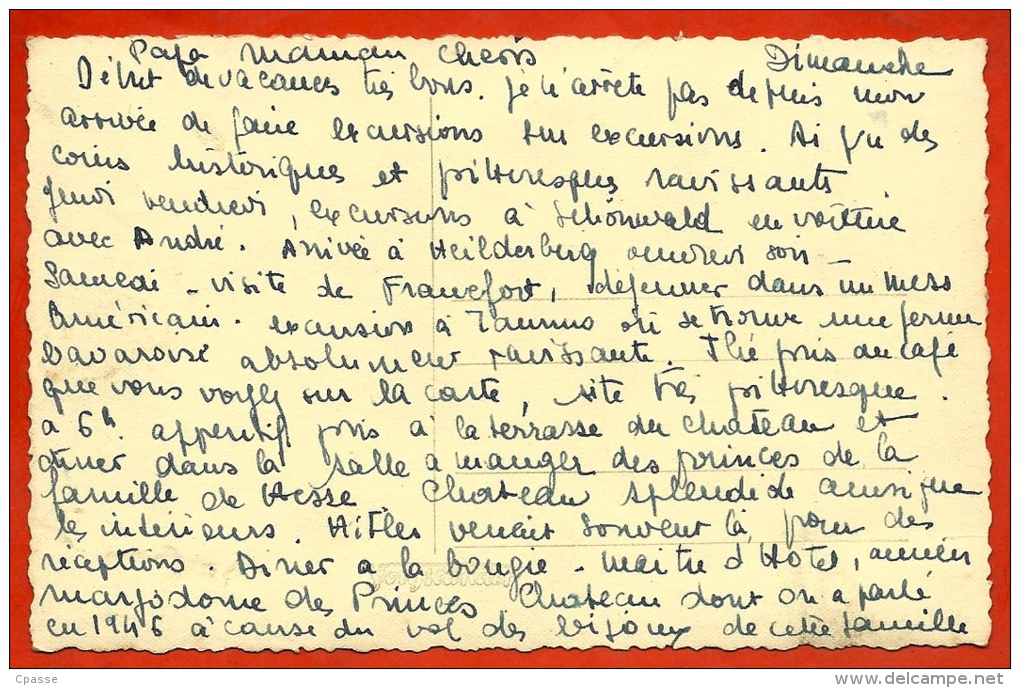 Papa Maman chéris Dimanche
Début de vacances très bons. Je n'arrête pas depuis mon
arrivée de faire excursions sur excursions. Ai vu des
coins historiques et pittoresques ravissants
Jeudi vendredi, excursions à Schönwald en voiture
avec André. Arrivée à Heilderberg vendredi soir -
Samedi - visite de Francfort, déjeuner dans un mess
Américain. excursion à Taunus où se trouve une ferme
bavaroise absolument ravissante. Thé pris au café
que vous voyez sur la carte, site très pittoresque.
à 6h. apperitif pris à la terrasse du chateau et
diner dans la salle à manger des princes de la
famille de Hesse Chateau splendide ainsi que
les intérieurs. Hitler venait souvent là pour des
réceptions. Diner a la bougie - Maitre d'Hotel, ancien
marjodome des Princes Chateau dont on a parlé
en 1946 à cause du vol des bijoux de cette famille
Cpasse
delcampe.net